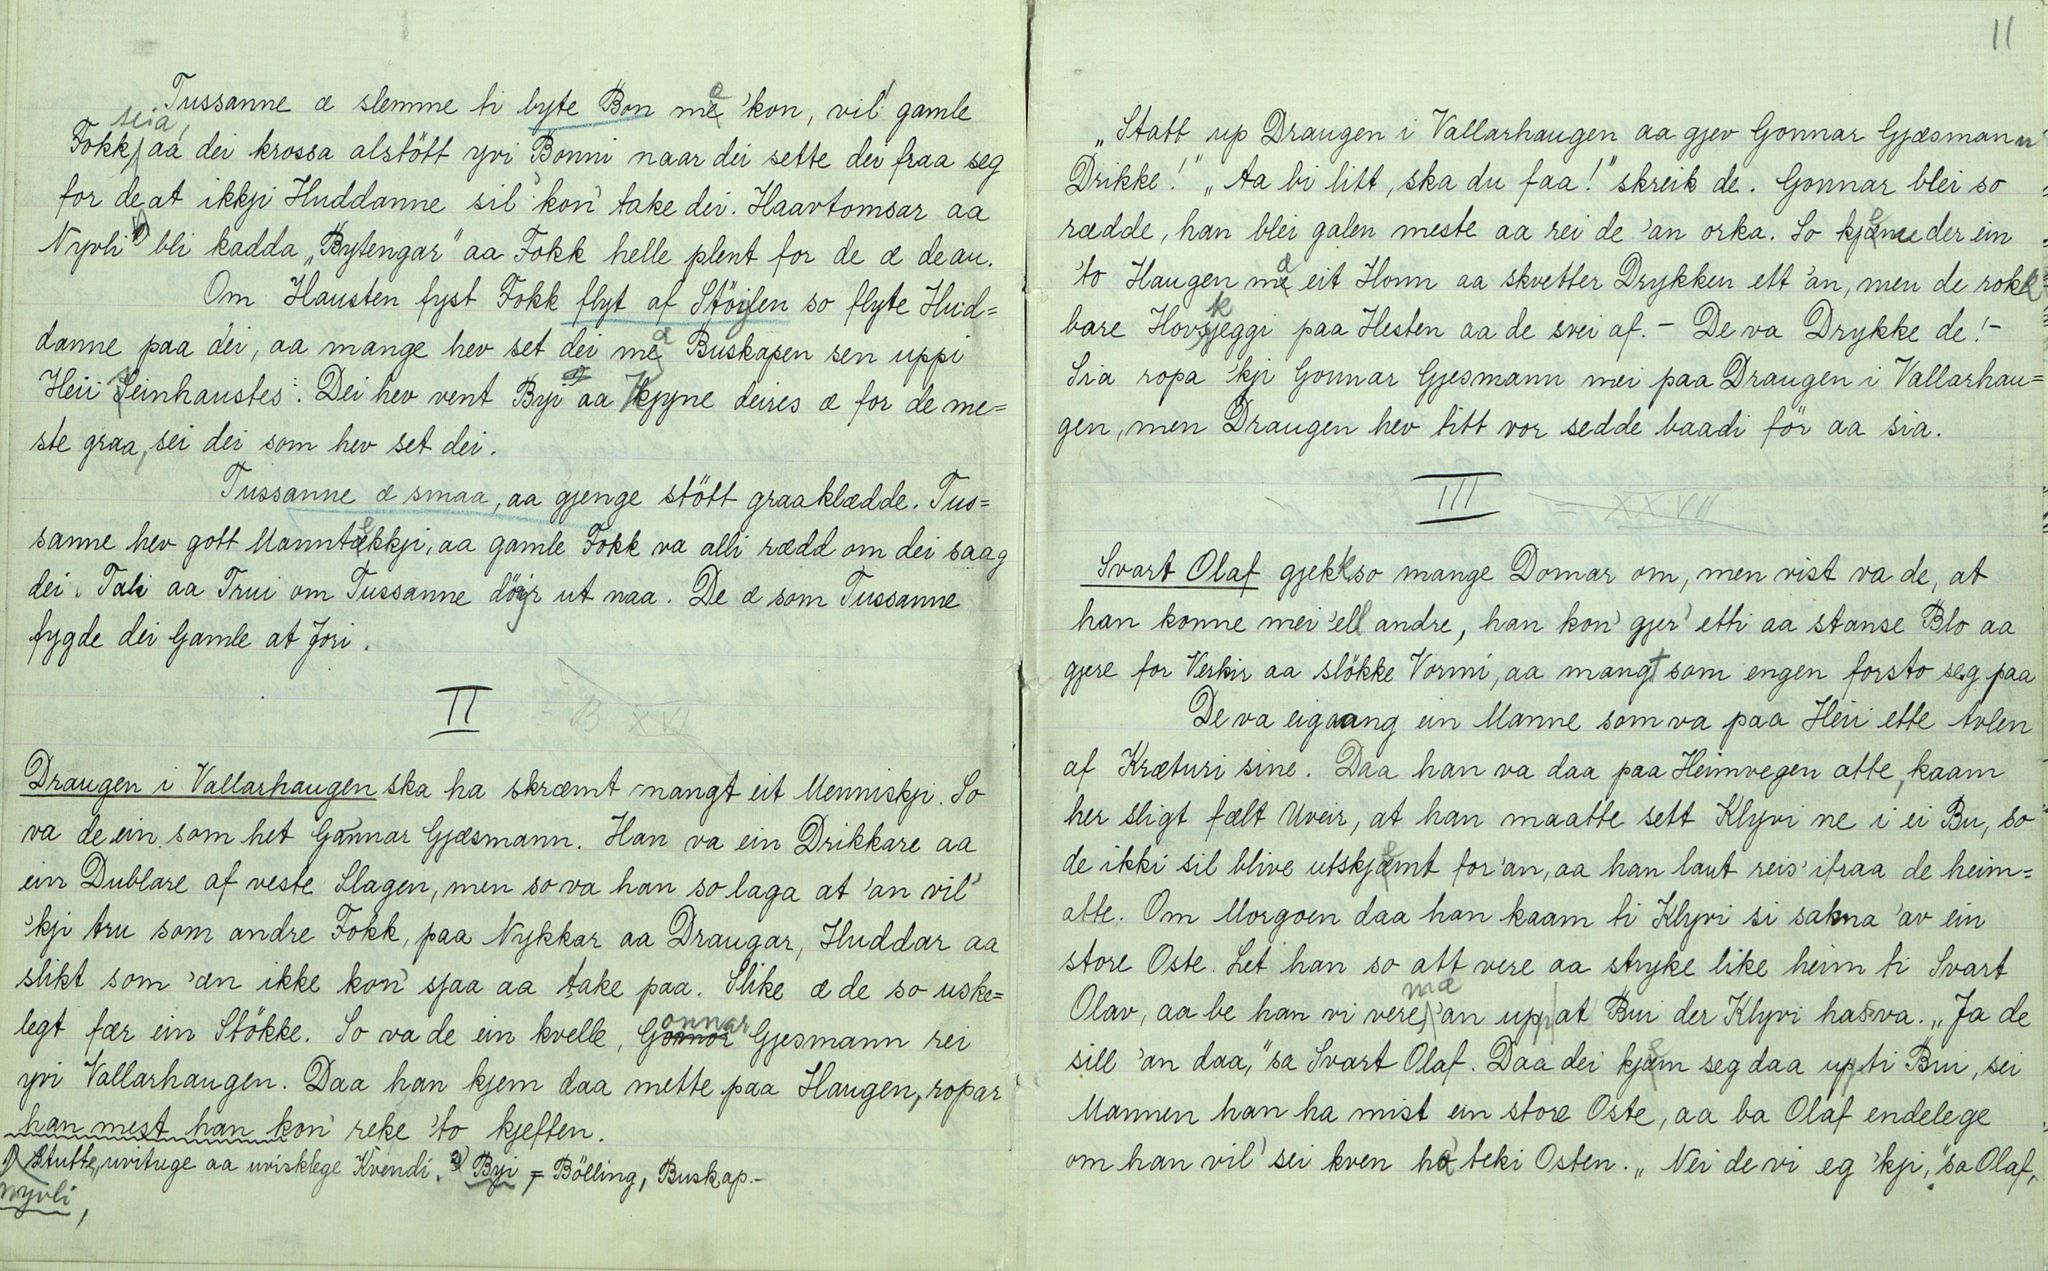 Tussanne æ slemme ti byte Bon mæ 'kon, vil' gamle
Fokk seia, aa dei krossa alstött yvi Bonni naar dei sette dei fraa seg
for de at ikkji Huddanne sil' kon' take dei. Haavtomsar aa
Nyvli 1) bli kadda „Bytengar" aa Fokk helle plent for de æ de au.
Om Hausten fyst Fokk flyt af Stöilen so flyte Hud=
danne paa dei, aa mange hev set dei mæ Buskapen sen uppi
Heii Seinhaustes. Dei hev vent Byi 2) aa Kjyne deires æ for de me=
ste graa, sei dei som hev set dei.
Tussanne æ smaa, aa gjenge stött graaklædde. Tus=
sanne hev gott Manntekkji, aa gamle Fokk va alli rædd om dei saag
dei. Tali aa Trui om Tussanne döyr ut naa. De æ som Tussanne
fygde dei Gamle at Jori.
II
B XVI
Draugen i Vallarhaugen ska ha skræmt mangt eit Menniskji. So
va de ein som het Gannar Gjæsmann. Han va ein Drikkare aa
ein Dublare af veste Slagen, men so va han so laga at 'an vil'
'kji tru som andre Fokk, paa Nykkar aa Draugar, Huddar aa
slikt som 'æn ikke kon' sjaa aa take paa. Slike æ de so uske=
legt fær ein Stökke. So va de ein kvelle, Gonnar Gjesmann rei
yvi Vallarhaugen. Daa han kjem daa mette paa Haugen, ropar
han mest han kon' reke 'to kjeften.
1) Stutte, uvituge aa uvisklege Kvendi. 2) Byi = Bölling, Buskap.-
nyvli,
11
„Statt up Draugen i Vallarhaugen aa gjev Gonnar Gjæsmann
Drikke!" „Aa bi litt, ska du faa!" skreik de. Gonnar blei so
rædde, han blei galen meste aa rei de 'an orka. So kjeme der ein
'to Haugen mæ eit Honn aa skvetter Drykken ett 'an, men de rokk
bare Hovskjeggi paa Hesten aa de svei af. - De va Drykke de! -
Sia ropa 'kji Gonnar Gjesmann mei paa Draugen i Vallarhau=
gen, men Draugen hev titt vor sedde baadi för aa sia.
III
= XXVII
Svart Olaf gjekk so mange Domar om, men vist va de, at
han konne mei 'ell andre, han kon' gjer' etti aa stanse Blo aa
gjere for Verkir aa slökke Vormi, aa mangt som engen forsto seg paa
De va eigaang ein Manne som va paa Heii ette Avlen
af Kræturi sine. Daa han va daa paa Heimvegen atte, kaam
her sligt fælt Uveir, at han maatte sett Klyvi ne i ei Bu, so
de ikki sil blive utskjemt for 'an, aa han laut reis' ifraa de heim=
atte. Om Morgoen daa han kaam ti Klyvi si sakna 'av ein
store Oste. Let han so att vere aa stryke like heim ti Svart
Olav, aa be han vi vere mæ 'an upp at Bui der Klyvi hass va. „Ja de
sill 'an daa," sa Svart Olaf. Daa dei kjem seg daa upp ti Bui, sei
Mannen han ha mist ein store Oste, aa ba Olaf endelege
om han vil' sei kven ha teki Osten. „Nei de vi eg 'kji," sa Olaf,